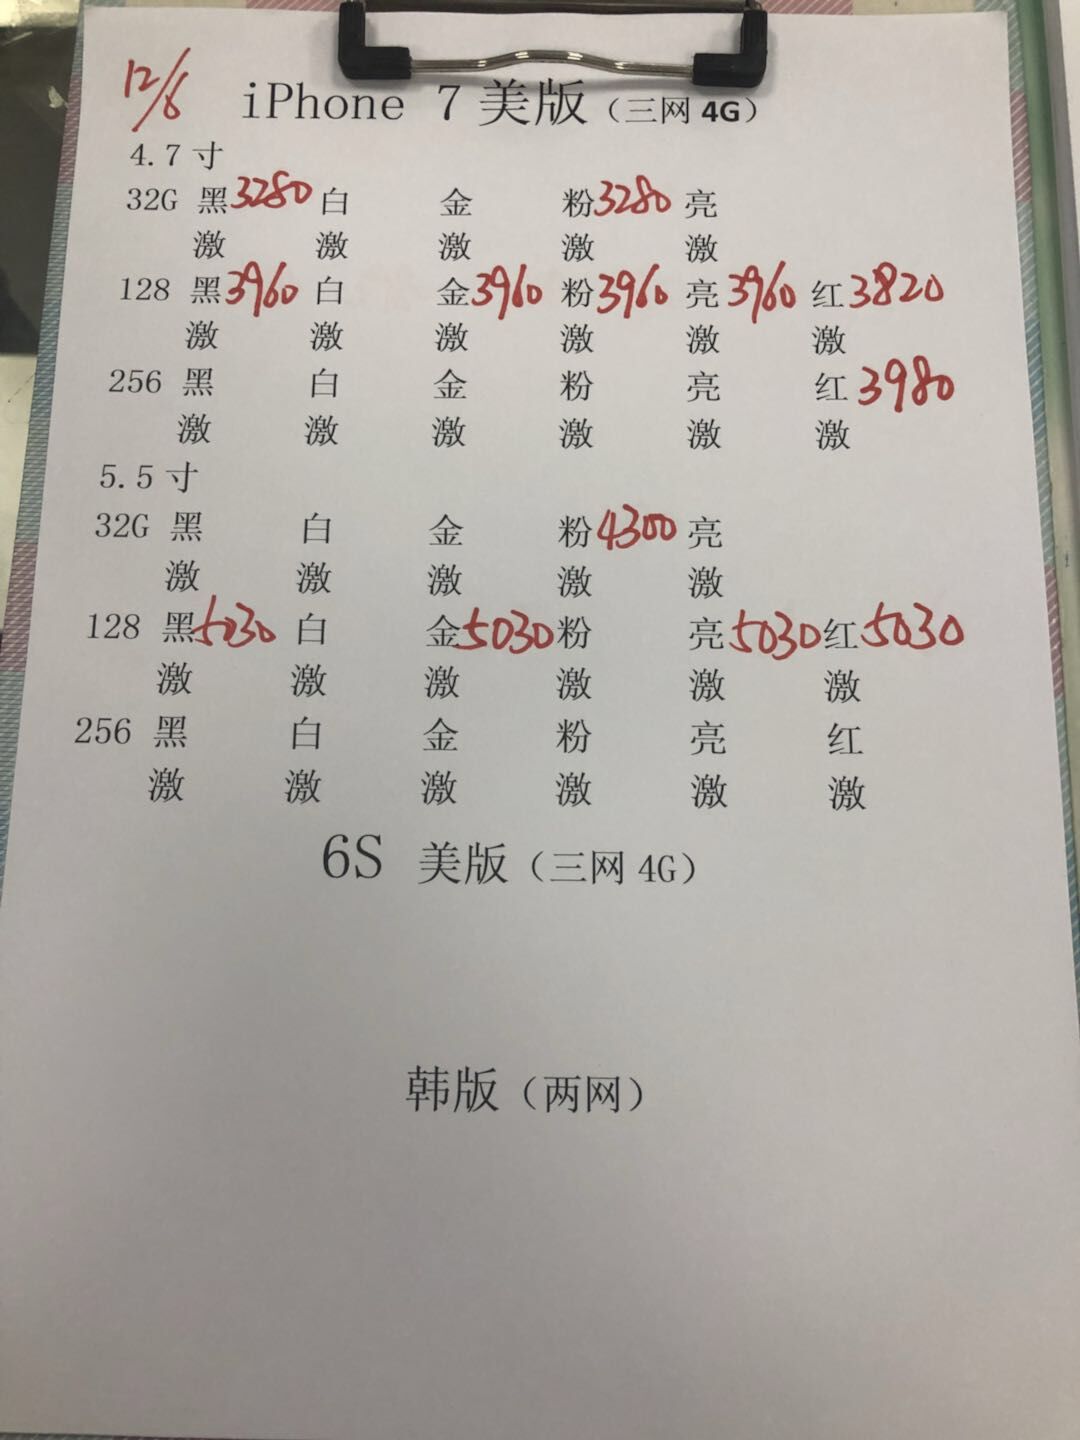 12/6
iPhone 7美版（三网4G）
4.7寸
32G 黑3280 白 金 粉3280 亮
激 激 激 激 激
128 黑3960 白 金3960 粉3960 亮3960 红3820
激 激 激 激 激 激
256 黑 白 金 粉 亮 红3980
激 激 激 激 激 激
5.5寸
32G 黑 白 金 粉4300 亮
激 激 激 激 激
128 黑5030 白 金5030 粉 亮5030 红5030
激 激 激 激 激 激
256 黑 白 金 粉 亮 红
激 激 激 激 激 激
6S 美版（三网4G）
韩版（两网）